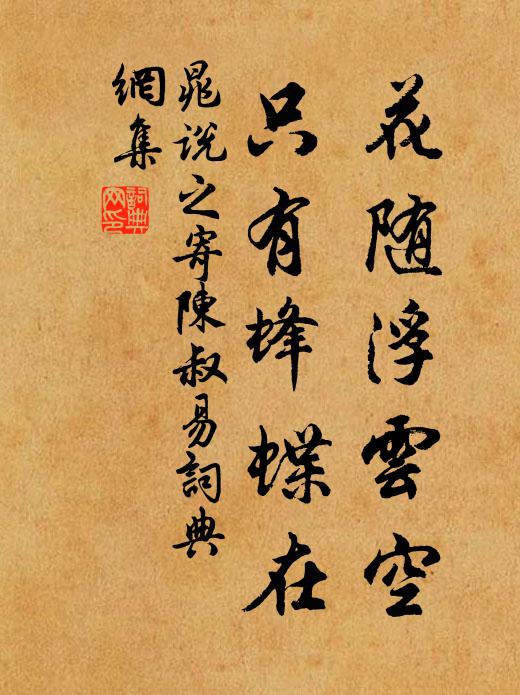 花随浮雲空
只有蜂蝶在
晁説之寄陳叔易詞典
網集
詞典
网印